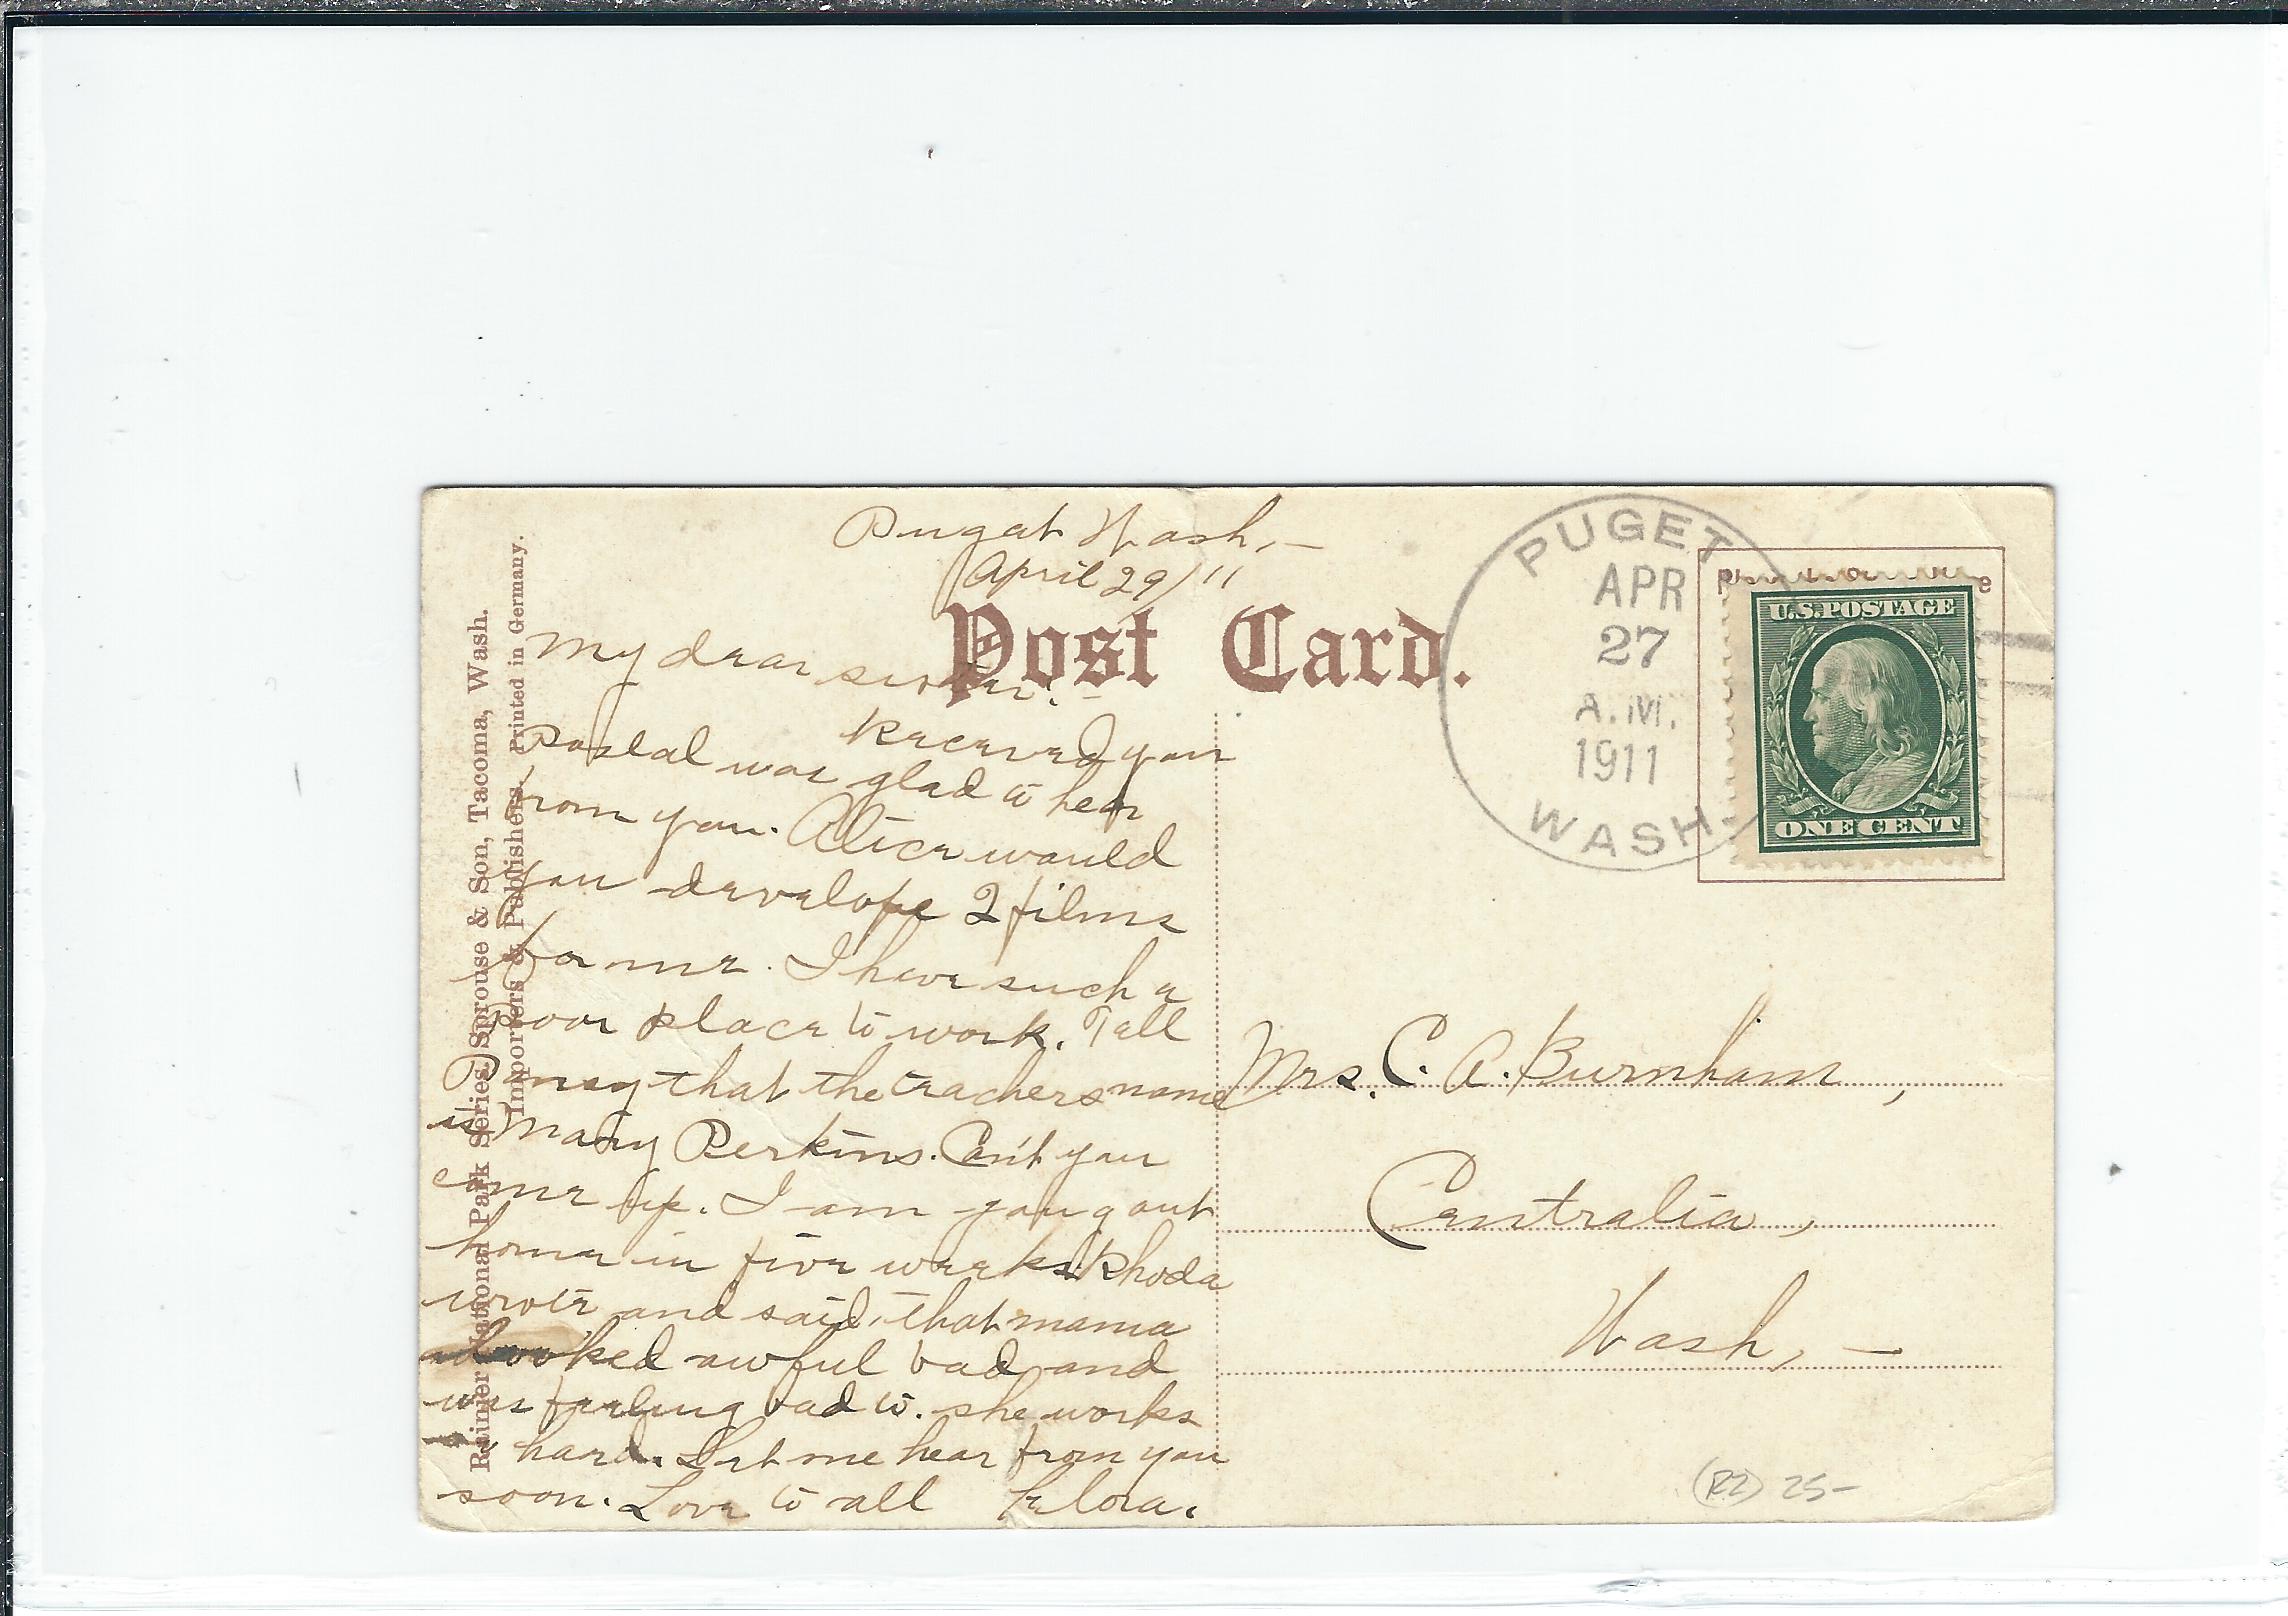 Puget Wash,—
April 29/11
Post Card.
My dear sister:—
Received your
Postal was glad to hear
from you. Alice would
you develope 2 films
for me. I have such a
poor place to work. Tell
that the teachers name
is Mary Perkins. Can't you
come up. I am going
home in five weeks. Rhoda
wrote and said, that mama
looked awful bad and
was feeling bad to. she works
hard. Let me hear from you
soon. Love to all Flora.
Rainier National Park Series, Sprouse & Son, Tacoma, Wash.
Importers & Publishers. Printed in Germany.
PUGET
APR
27
A.M.
1911
WASH.
U.S. POSTAGE
ONE CENT
Mrs. C. A. Burnham,
Centralia,
Wash, —
(R2) 25-